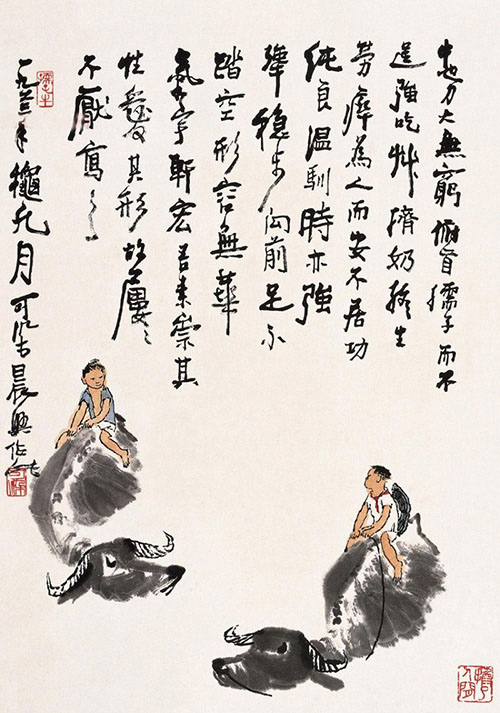 牛也力大無窮俯首孺子而不
逞強吃艸擠奶終生
勞瘁為人而安不居功
純良溫馴時亦強
犟穩步向前足不
踏空形容無華
氣宇軒宏吾素崇其
性愛其形故屢〻
不厭寫之
一九六三年龝九月可染晨興作